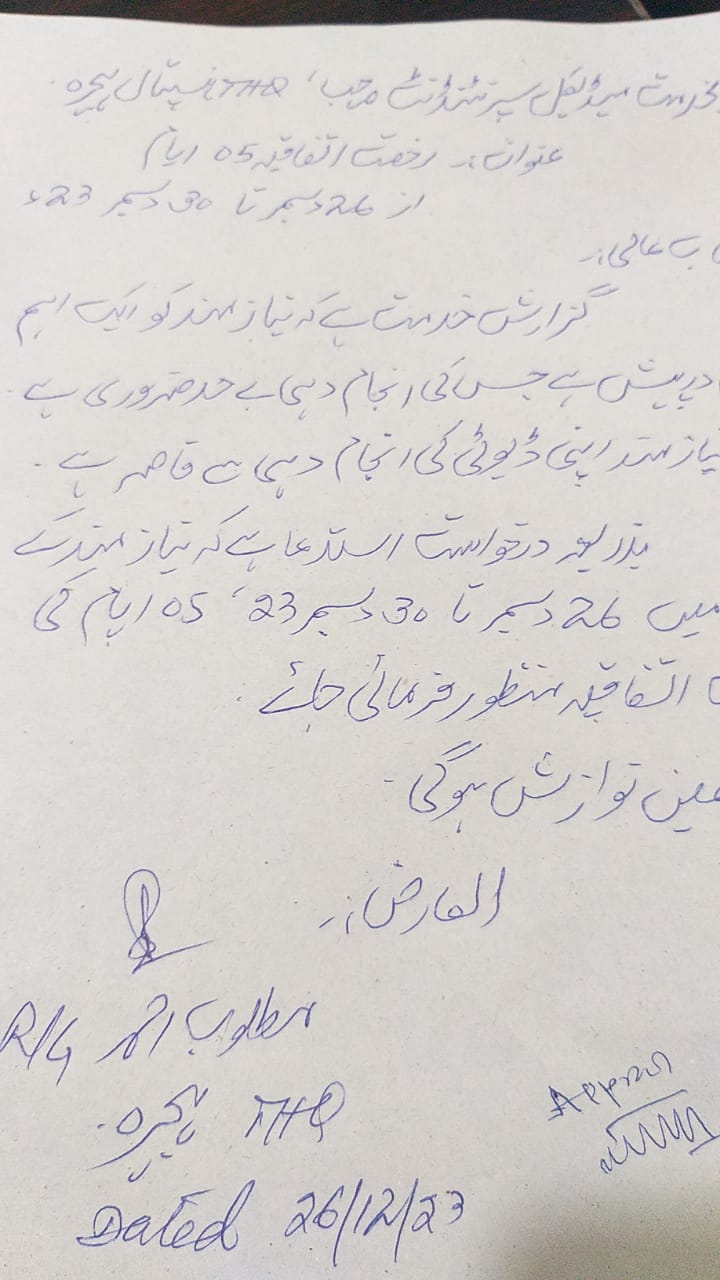 بخدمت میڈیکل سپرنٹنڈنٹ صاحب، THQ ہسپتال ہجیرہ
عنوان:۔ رخصت اتفاقیہ 05 ایام
از 26 دسمبر تا 30 دسمبر 23ء
عالی:۔
گزارش خدمت ہے کہ نیازمند کو ایک اہم
درپیش ہے جس کی انجام دہی بے حد ضروری ہے۔
نیازمند اپنی ڈیوٹی کی انجام دہی سے قاصر ہے۔
بذریعہ درخواست استدعا ہے کہ نیازمند کے
میں 26 دسمبر تا 30 دسمبر 23، 05 ایام کی
اتفاقیہ منظور فرمائی جائے۔
عین نوازش ہوگی۔
العارض:۔
مطلوب احمر R/G
THQ ہجیرہ۔
Dated 26/12/23